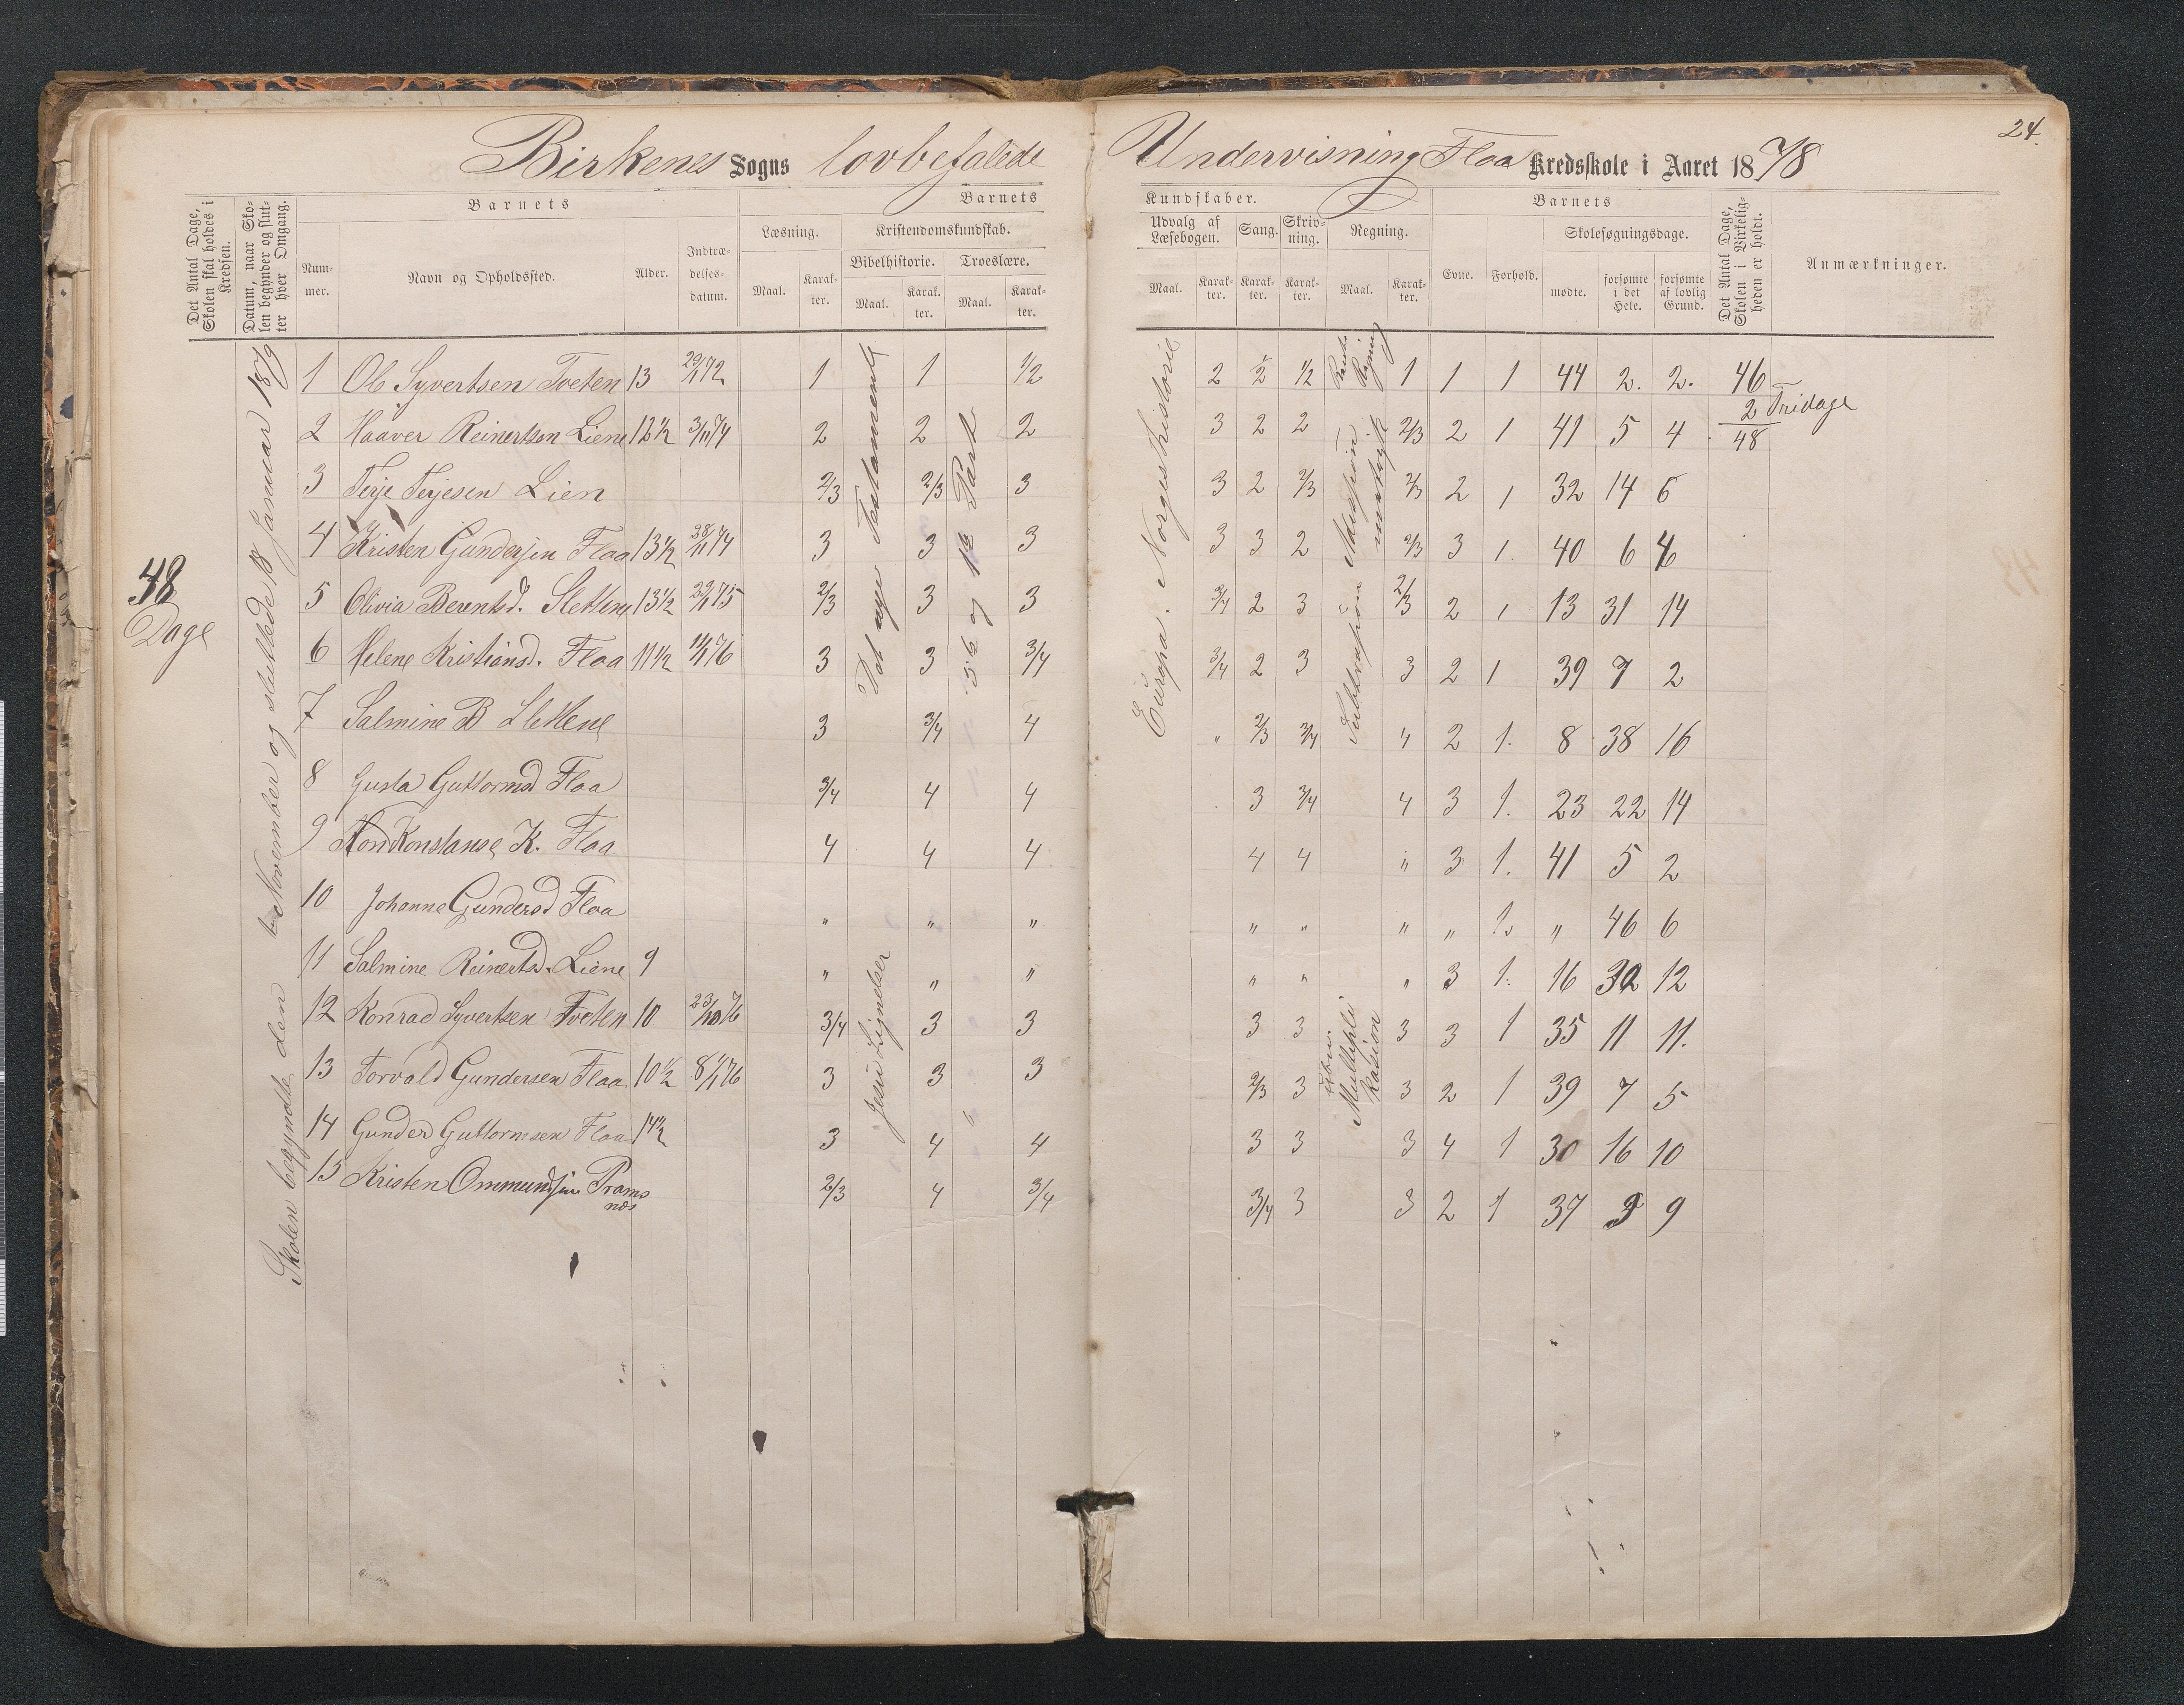 24.
Birkenes Sogns lovbefalede Undervisning Floa Kredsskole i Aaret 1878
Det Antal Dage, Skolen skal holdes i Kredsen.
Datum, naar Skolen begynder og slutter hver Omgang.
Barnets
Nummer.
Navn og Opholdssted.
Alder.
Indtrædelsesdatum.
Barnets Kundskaber.
Læsning.
Maal.
Karakter.
Kristendomskundskab.
Bibelhistorie.
Maal.
Karakter.
Troeslære.
Maal.
Karakter.
Udvalg af Læsebogen.
Maal.
Karakter.
Sang.
Karakter.
Skrivning.
Karakter.
Regning.
Maal.
Karakter.
Barnets
Evne.
Forhold.
Skolesøgningsdage.
mødte.
forsømte i det Hele.
forsømte af lovlig Grund.
Det Antal Dage, Skolen i Virkeligheden er holdt.
Anmærkninger.
48 Dage
Skolen begyndte den November og sluttede 18 Januar 1879
Det nye Testamente
Jesu Lignelser
5te og 1te Part
Europa. Norgeshistorie
Subtrapion
Multiplikasion
1 Ol Syvertsen Tveten 13 29/11 72 1 1 1/2 2 1/2 1/2 1 1 1 44 2. 2. 46
2 Fridage
48
2 Haaver Reinertsen Liene 12 1/2 3/11 74 2 2 2 3 2 2 2/3 2 1 41 5 4
3 Terje Terjesen Lien 2/3 2/3 3 3 2 2/3 2/3 2 1 32 14 6
4 Kristen Gundersen Floa 13 1/2 28/11 74 3 3 3 3 3 2 2/3 3 1. 40 6 4
5 Olivia Berentsd. Slettene 13 1/2 29/11 75 2/3 3 3 3/4 2 3 2/3 2 1 13 31 14
6 Helene Kristiansd. Floa 11 1/2 14/11 76 3 3 3/4 3/4 2 3 3 2 1 39 7 2
7 Salmine B Slettene 3 3/4 4 " 2/3 3/4 4 2 1. 8 38 16
8 Gusta Guttormsd Floa 3/4 4 4 3 3/4 4 3 1. 23 22 14
9 Konstanse K. Floa 4 4 4 4 4 " 3 1. 41 5 2
10 Johanne Gundersd Floa " " " " " " " 1. " 46 6
11 Salmine Reinertsd. Liene 9 " " " " " " 3 1. 16 30 12
12 Konrad Syvertsen Tveten 10 23/10 76 3/4 3 3 3 3 3 3 1 35 11 11.
13 Torvald Gundersen Floa 10 1/2 8/11 76 3 3 3 2/3 3 3 2 1 39 7 5
14 Gunder Guttormsen Floa 14 1/2 3 4 4 3 3 3 4 1 30 16 10
15 Kristen Ommundsen Tramsnæs 2/3 4 3/4 3/4 3 3 2 1 37 9 9